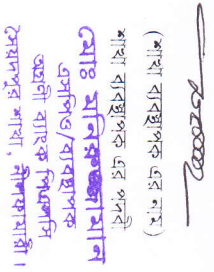 (শাখা ব্যবস্থাপক এর নাম)
শাখা ব্যবস্থাপক এর পদবি
মোঃ মনিরুজ্জামান
এসপিও/ব্যবস্থাপক
অগ্রণী ব্যাংক লিমিটেড
শাখা, নীলফামারী।